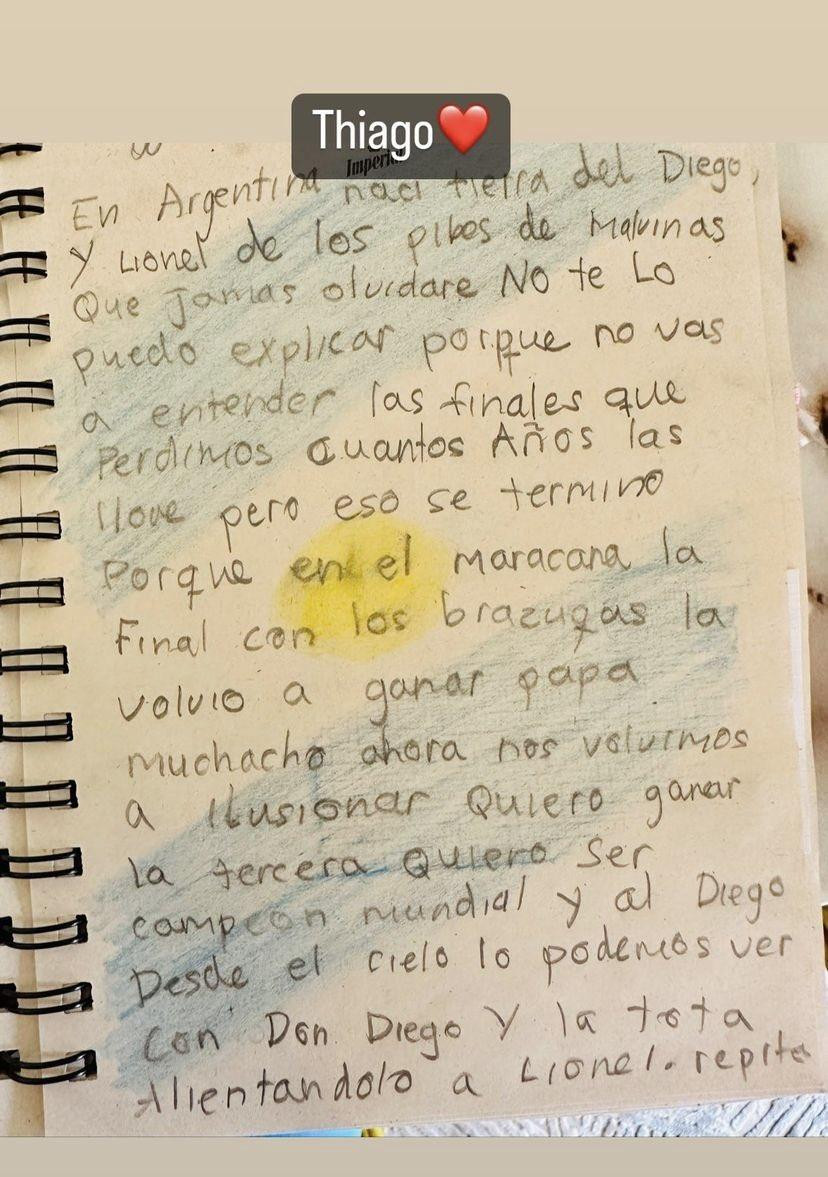 Thiago❤️
Imperial
En Argentina naci tierra del Diego,
y Lionel de los pibes de Malvinas
Que Jamas olvidare NO te Lo
puedo explicar porque no vas
a entender las finales que
Perdimos cuantos Años las
llore pero eso se termino
Porque en el maracana la
Final con los brazugas la
volvio a ganar papa
muchacho ahora nos volvimos
a Ilusionar Quiero ganar
la tercera Quiero ser
campeon mundial y al Diego
Desde el cielo lo podemos ver
con Don Diego Y la tota
Alientandolo a Lionel. repite